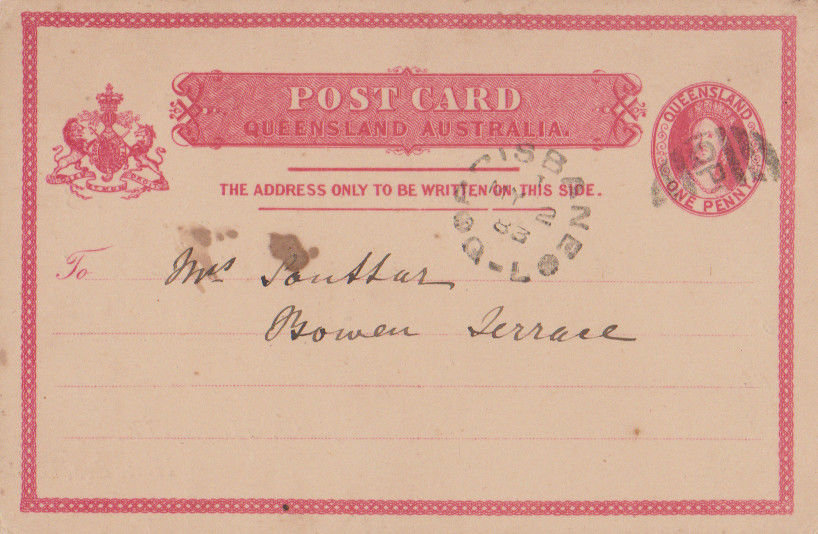 POST CARD
QUEENSLAND AUSTRALIA.
QUEENSLAND
ONE PENNY
THE ADDRESS ONLY TO BE WRITTEN ON THIS SIDE.
BRISBANE
83
To Mrs Souttar
Bowen Terrace